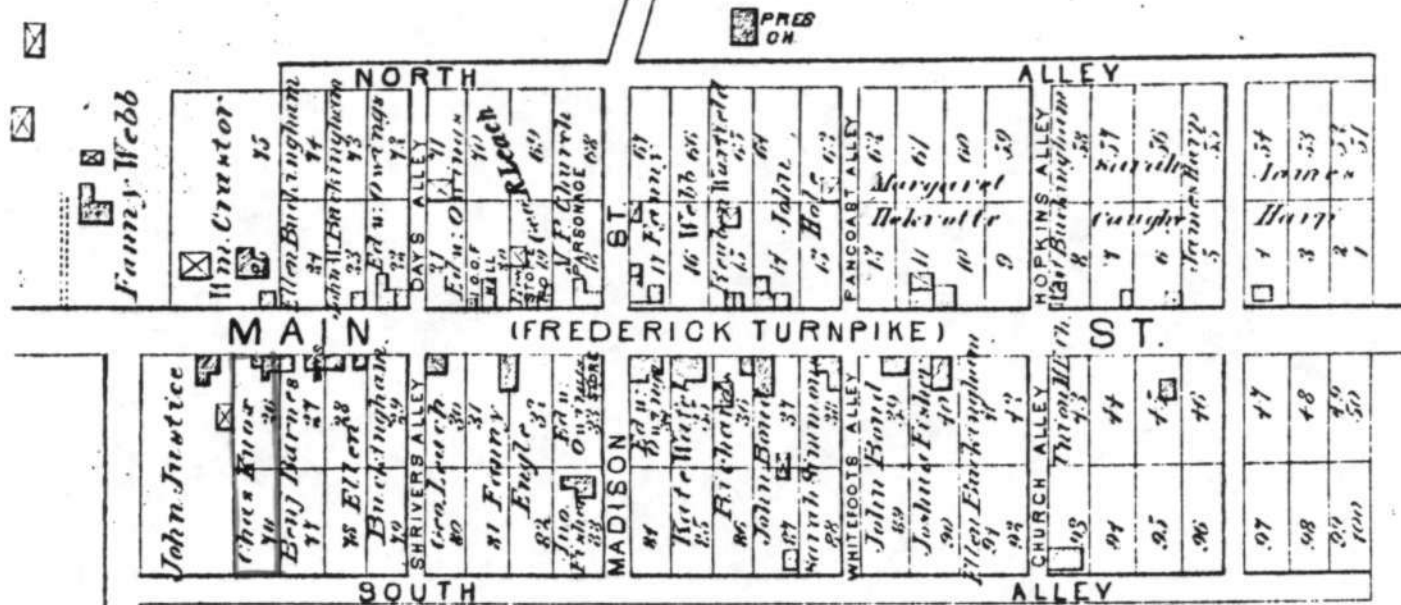 PRES
CH.
NORTH ALLEY
Fanny Webb
Wm. Crastor 75
Ellen Buckingham 74 24
John W. Buckingham 73 23
Edw: Owings 72 22
DAYS ALLEY
71 21
Edw: Owings
70
I.O.O.F
HALL
R Leach
69
STORE
P.O. 19
V P Church 68
PARSONAGE
ST
67 17 Fanny
66 16 Webb
Reuben Warfield 65 15
64 14 John
63 13 Hole
PANCOAST ALLEY
62 12
61 11
60 10
59 9
Margaret
HOPKINS ALLEY
Buckingham 58 8
57 7
56 6
James Harp 55 5
54 4
53 3
52 2
51 1
James
Harp
MAIN (FREDERICK TURNPIKE) ST.
John Justice
Chas Knox 26 76
Benj Barnes 27 77
28 78 Ellen
Buckingham 29 79
SHRIVERS ALLEY
Geo. Leach 30 80
31 81 Fanny
Engle 32 82
Edw: Owings 33
STORE
Jno. Fisher 83
MADISON
Edw:
84
Kate 85
Richard 36 86
John Bond 37 87
Sarah Simmons 38 88
WHITEFOOTS ALLEY
John Bond 39 89
Joshua Fisher 40 90
Ellen Buckingham 41 91
42 92
CHURCH ALLEY
Union M E Ch. 43 93
44 94
45 95
46 96
47 97
48 98
49 99
50 100
SOUTH ALLEY